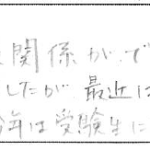 関係が、で
したが 最近は
年は受験生に